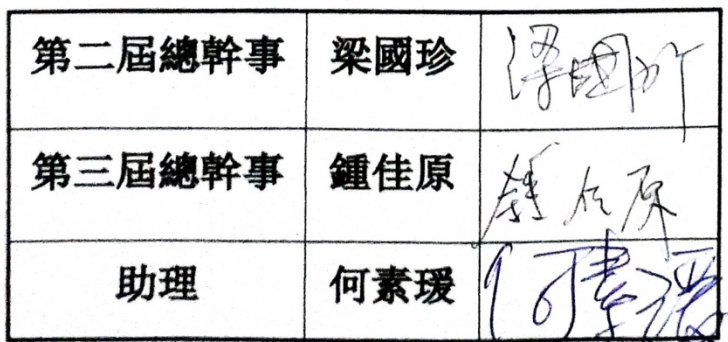 第二屆總幹事 梁國珍 梁國珍
第三屆總幹事 鍾佳原 鍾佳原
助理 何素瑗 何素瑗